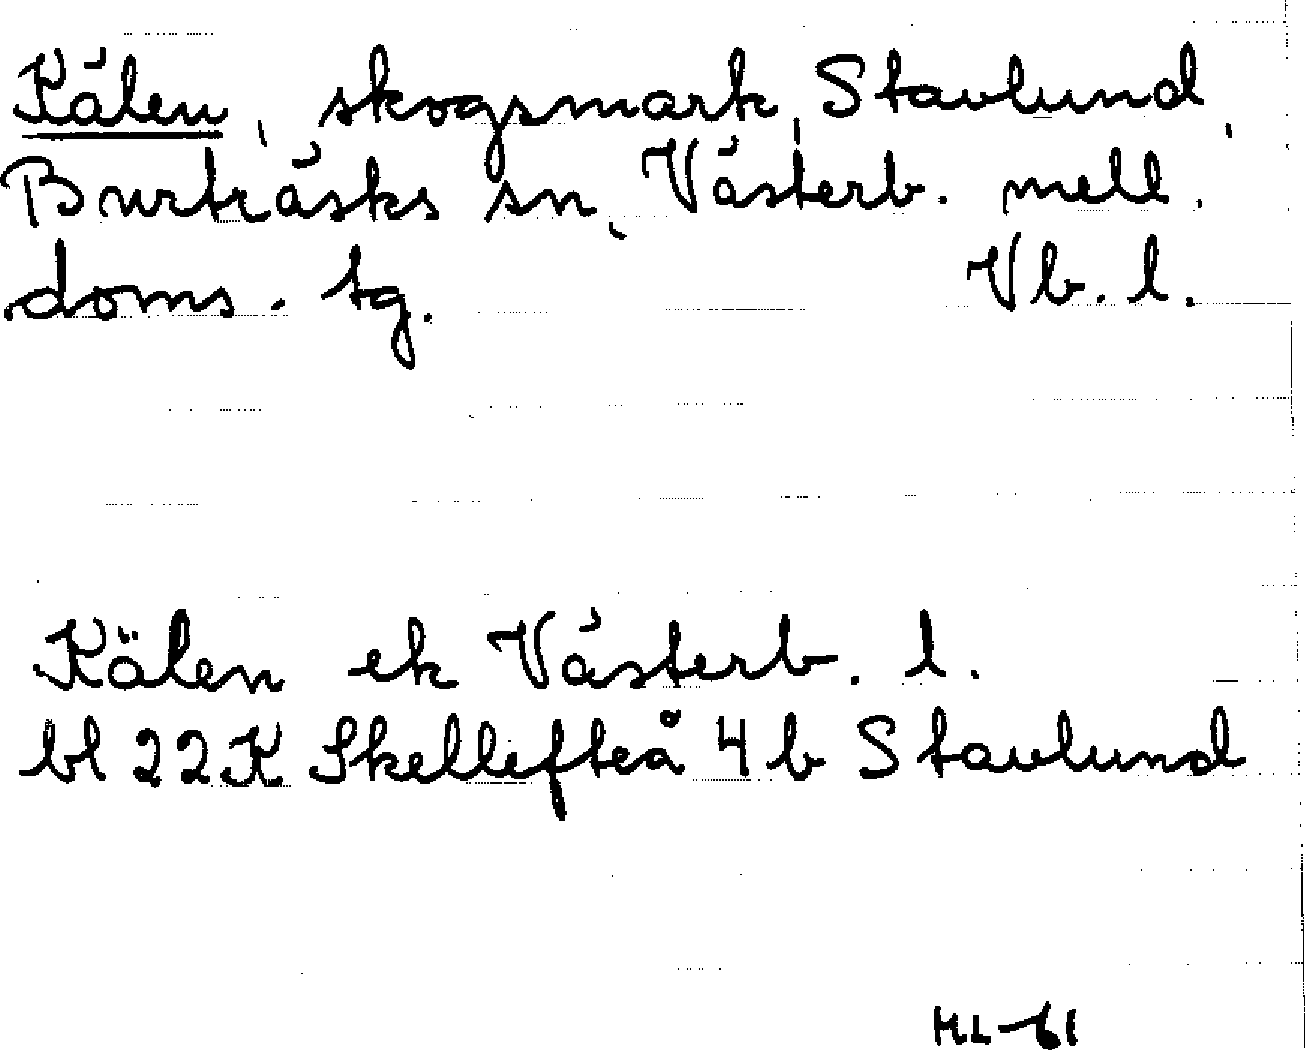 Kälen, skogsmark, Stavlund,
Burträsks sn, Västerb. mell.
doms. tg. Vb. l.
Kälen ek Västerb. l.
bl 22K Skellefteå 4b Stavlund
ML-61